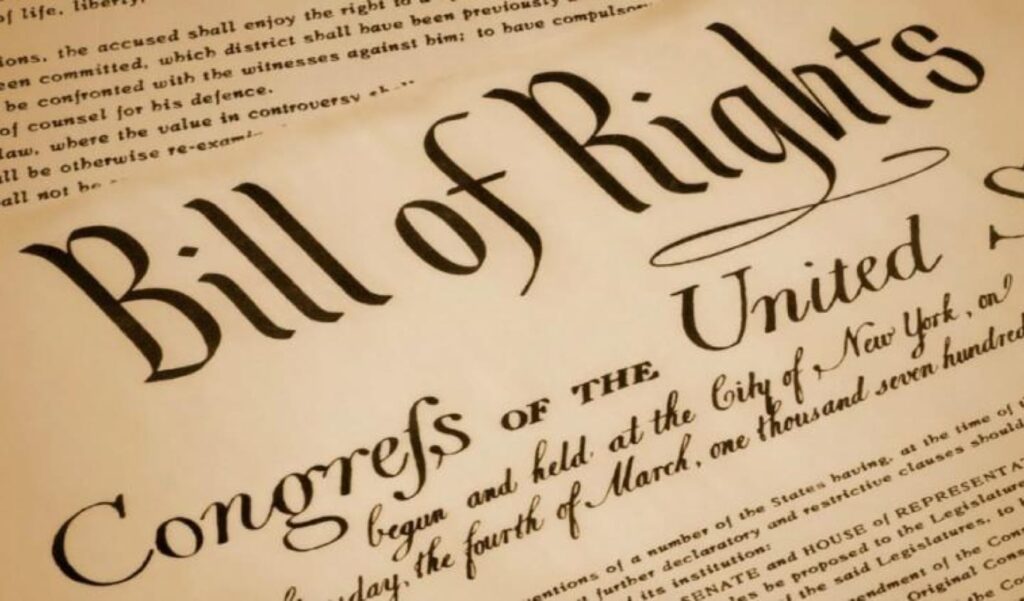 of life, liberty,
ions, the accused shall enjoy the right to a
een committed, which district shall have been previously
be confronted with the witnesses against him; to have compulsory
of counsel for his defence.
law, where the value in controversy
ll be otherwise re-exami
all not be
Bill of Rights
Congreſs OF THE United S
begun and held at the City of New York, on
the fourth of March, one thousand seven hundred
entions of a number of the States having, at the time of
further declaratory and restrictive clauses should
its institution:
SENATE and HOUSE of REPRESENTA
es be proposed to the Legislature
of the said Legislatures, to
endment of the Con
Original Cons